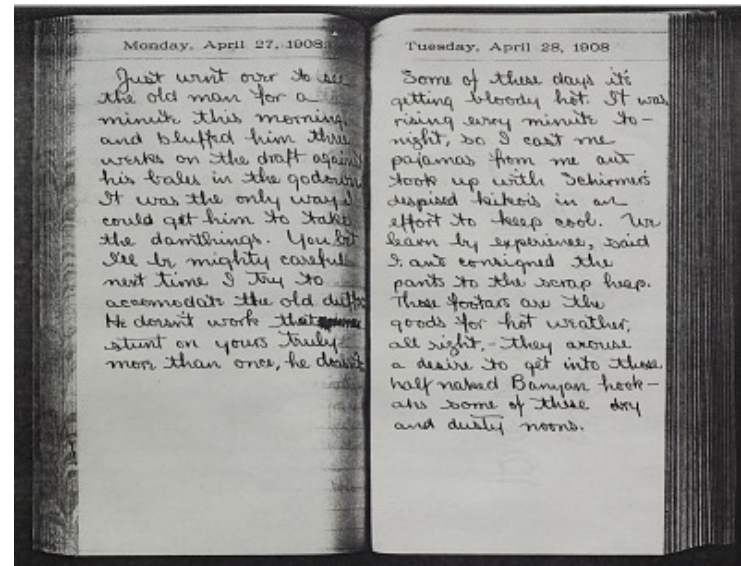 Monday, April 27, 1908.
Just went over to see
the old man for a
minute this morning,
and bluffed him three
weeks on the draft against
his bales in the godown
It was the only way I
could get him to take
the damthings. You bet
I'll be mighty careful
next time I try to
accomodate the old duffer
He doesn't work that
stunt on yours truly
more than once, he doesn't
Tuesday, April 28, 1908
Some of these days it's
getting bloody hot. It was
rising every minute to-
night, so I cast me
pajamas from me and
took up with Schirmer's
despised kikois in an
effort to keep cool. We
learn by experience, said
I and consigned the
pants to the scrap heap.
Those footars are the
goods for hot weather,
all right, - they arouse
a desire to get into those
half naked Banyan hook-
ahs some of these dry
and dusty noons.